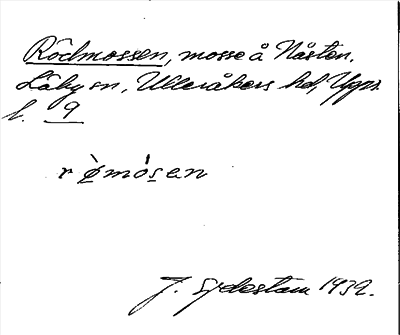 Rödmossen, mosse å Nåsten.
Läby sn, Ulleråkers hd, Upps.
l. 9
r ø̀mósen
J. Sjdestam 1932.